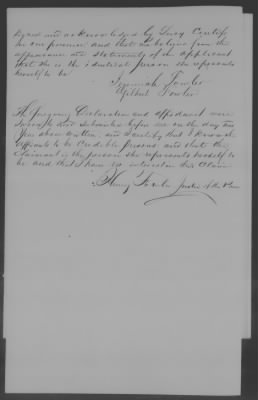 signed and acknowledged by Lucy Certify
in our presence and that we believe from the
appearance and statements of the applicant
that she is the identical person she represents
herself to be
Jeremiah Fowler
Gilbert Fowler
The foregoing Declaration and affidavit were
Sworn to and subscribed before me on the day and
Year above written, and I certify that I know the
affiants to be Credible persons and that the
Claimant is the person she represents herself to
be and that I have no interest in this Claim
Henry Justice of the Peace